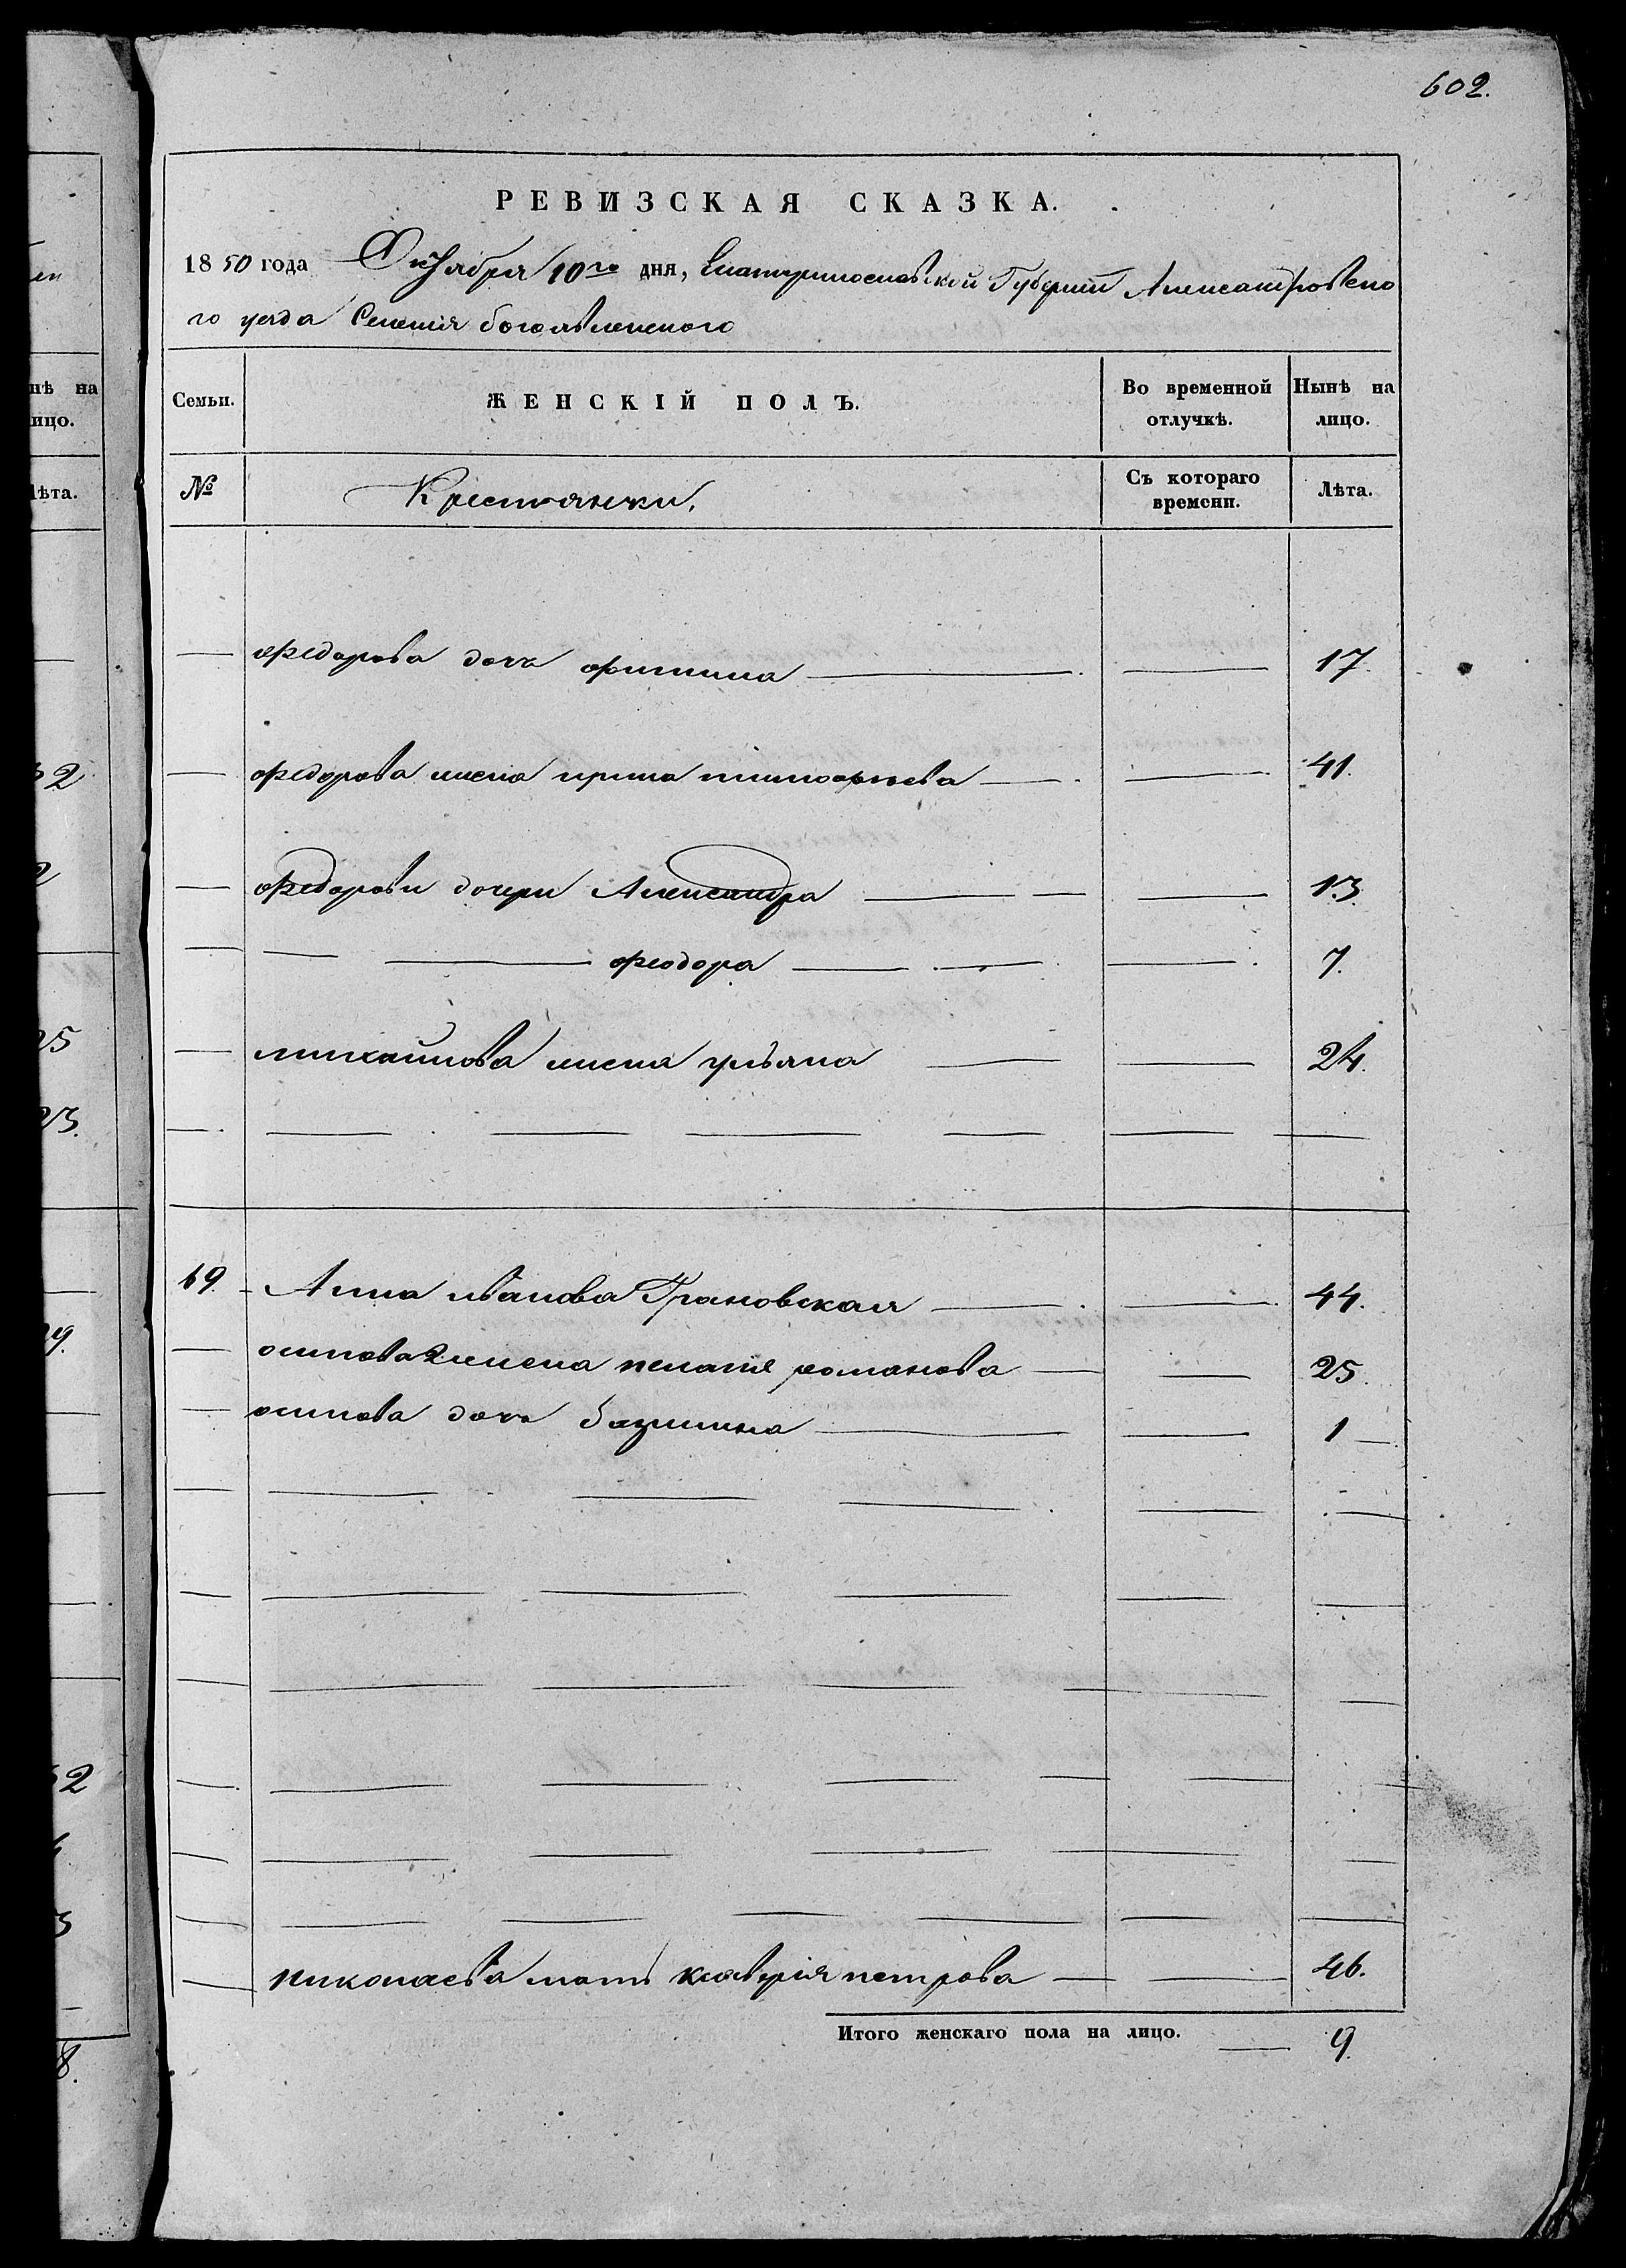 602.
РЕВИЗСКАЯ СКАЗКА.
1850 года Октября 10го дня, Екатеринославской Губернии Александровско
го уезда Селения богоявленского
Семьи. ЖЕНСКІЙ ПОЛЪ. Во временной отлучкѣ. Нынѣ на лицо.
№ Крестьянки. Съ котораго времени. Лѣта.
федорова дочь фитина 17.
федорова жена ирина тимофѣева 41.
федорови дочери Александра 13.
феодора 7.
михайлова жена ульяна 24.
69. Анна иванова Грановская 44.
осипова 2 жена пелагия романова 25.
осипова дочь 1
николаева мать клавдия петрова 46.
Итого женскаго пола на лицо. 9.
нѣ на
ицо.
лѣта.
32
2
25
23.
62
8.